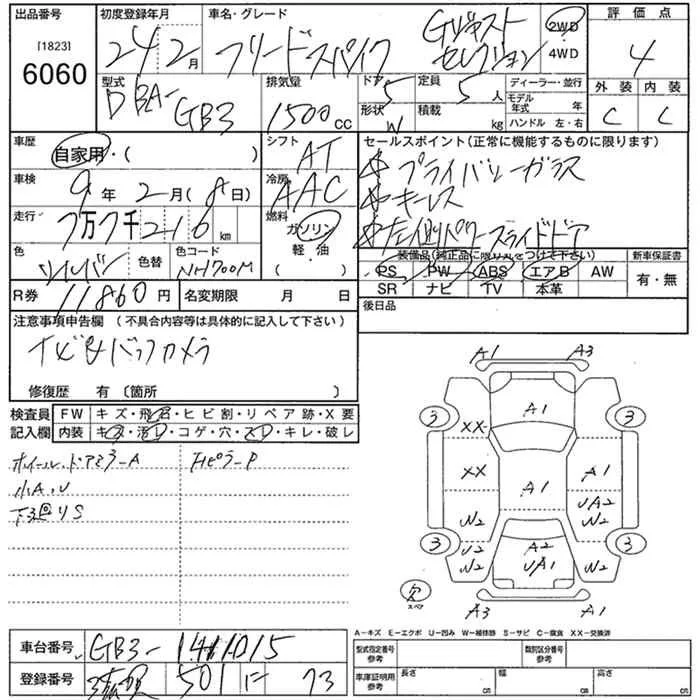 出品番号 初度登録年月 車名・グレード 評価点
[1823]
6060
24年 2月 フリードスパイク Gジャスト セレクション 2WD 4WD 4
型式 DBA-GB3 排気量 1500cc ドア 5 定員 5人 ディーラー・並行 外装 内装
形状 W 積載 kg モデル年式 年 ハンドル 左・右 C C
車歴 自家用・( ) シフト AT セールスポイント(正常に機能するものに限ります)
車検 9年 2月(8日) 冷房 AAC プライバシーガラス
キーレス
走行 7万7千216km 燃料 ガソリン・軽油 ( ) 左側パワースライドドア
色 シルバー 色替 色コード NH700M 装備品(純正品に限り〇をつけて下さい) 新車保証書
PS PW ABS エアB AW 有・無
SR ナビ TV 本革
R券 11860円 名変期限 月 日 後日品
注意事項申告欄(不具合内容等は具体的に記入して下さい)
ナビ&バックカメラ
修復歴 有〔箇所 〕
検査員 FW キズ・飛石・ヒビ割・リペア跡・X要
記入欄 内装 キズ・汚レ・コゲ・穴・スレ・キレ・破レ
ホイール・ドアミラーA Fピラー P
小A.U
下廻りS
A1 A3
3 A1 3
XX
XX A1 A1
UA2
W2 W2
3 3
U2 A2
W2 UA1 W2
欠
スペア
A3 A1
A-キズ E-エクボ U-凹み W-補修跡 S-サビ C-腐食 XX-交換済
車台番号 GB3-1411015 型式指定番号 参考 類別区分番号 参考
登録番号 501 に 73 車庫証明用 参考 長さ cm 幅 cm 高さ cm